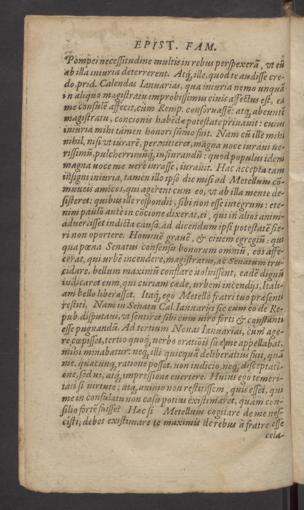 EPIST. FAM.
Pompei necessitudine multis in rebus perspexerā, vt eū
ab illa iniuria deterrerent. Atq́, ille, quod te audisse cre-
do, prid. Calendas Ianuarias, qua iniuria nemo unquā
in aliquo magistratu improbissimus ciuis affectus est, ea
me consulē affecit, cum Remp. conseruassē: atq́, abeuntē
magistratu, concionis habēdæ potestate priuauit: cuius
iniuria mihi tamen honori summo fuit. Nam cū ille mihi
nihil, nisi vt iurarē, permitteret, magna uoce iuraui ue-
rissimū, pulcherrimūq́, iusiurandū: quod populus idem
magna uoce me uerè iurasse, iurauit. Hac accepta tam
insigni iniuria, tamen illo ipso die misi ad Metellum cō-
muneis amicos, qui agerent cum eo, vt ab illa mente de-
sisteret: quibus ille respondit, sibi non esse integrum: ete-
nim paulò ante in cōcione dixerat, ei, qui in alios anim-
aduertisset indicta causa, ad dicendum ipsi potestatē fie-
ri non oportere. Hominē grauē, & ciuem egregiū: qui
qua pœna Senatus consensu bonorum omniū, eos affe-
cerat, qui urbē incendere, magistratus, ac Senatum tru-
cidare, bellum maximū conflare uoluissent, eadē dignū
iudicaret eum, qui curiam cæde, urbem incendijs, Itali-
am bello liberasset. Itaq́, ego Metello fratri tuo præsenti
restiti. Nam in Senatu Cal. Ianuarijs sic cum eo de Re-
pub. disputaui, vt sentiret sibi cum uiro forti & constanti
esse pugnandū. Ad tertium Nonas Ianuarias, cum age-
re cœpisset, tertio quoq́, uerbo orationis suæ me appellabat,
mihi minabatur: neq́, illi quicquā deliberatius fuit, quā
me, quacunq́, ratione posset, non iudicio, neq́, disceptati-
one, sed ui, atq́, impressione euertere. Huius ego temeri-
tati si virtute, atq́, animo non restitissem, quis esset, qui
me in consulatu non casu potius existimaret, quàm con-
silio fortē fuisse? Hæc si Metellum cogitare de me nes-
cisti, debes existimare te maximis de rebus à fratre esse
cela-